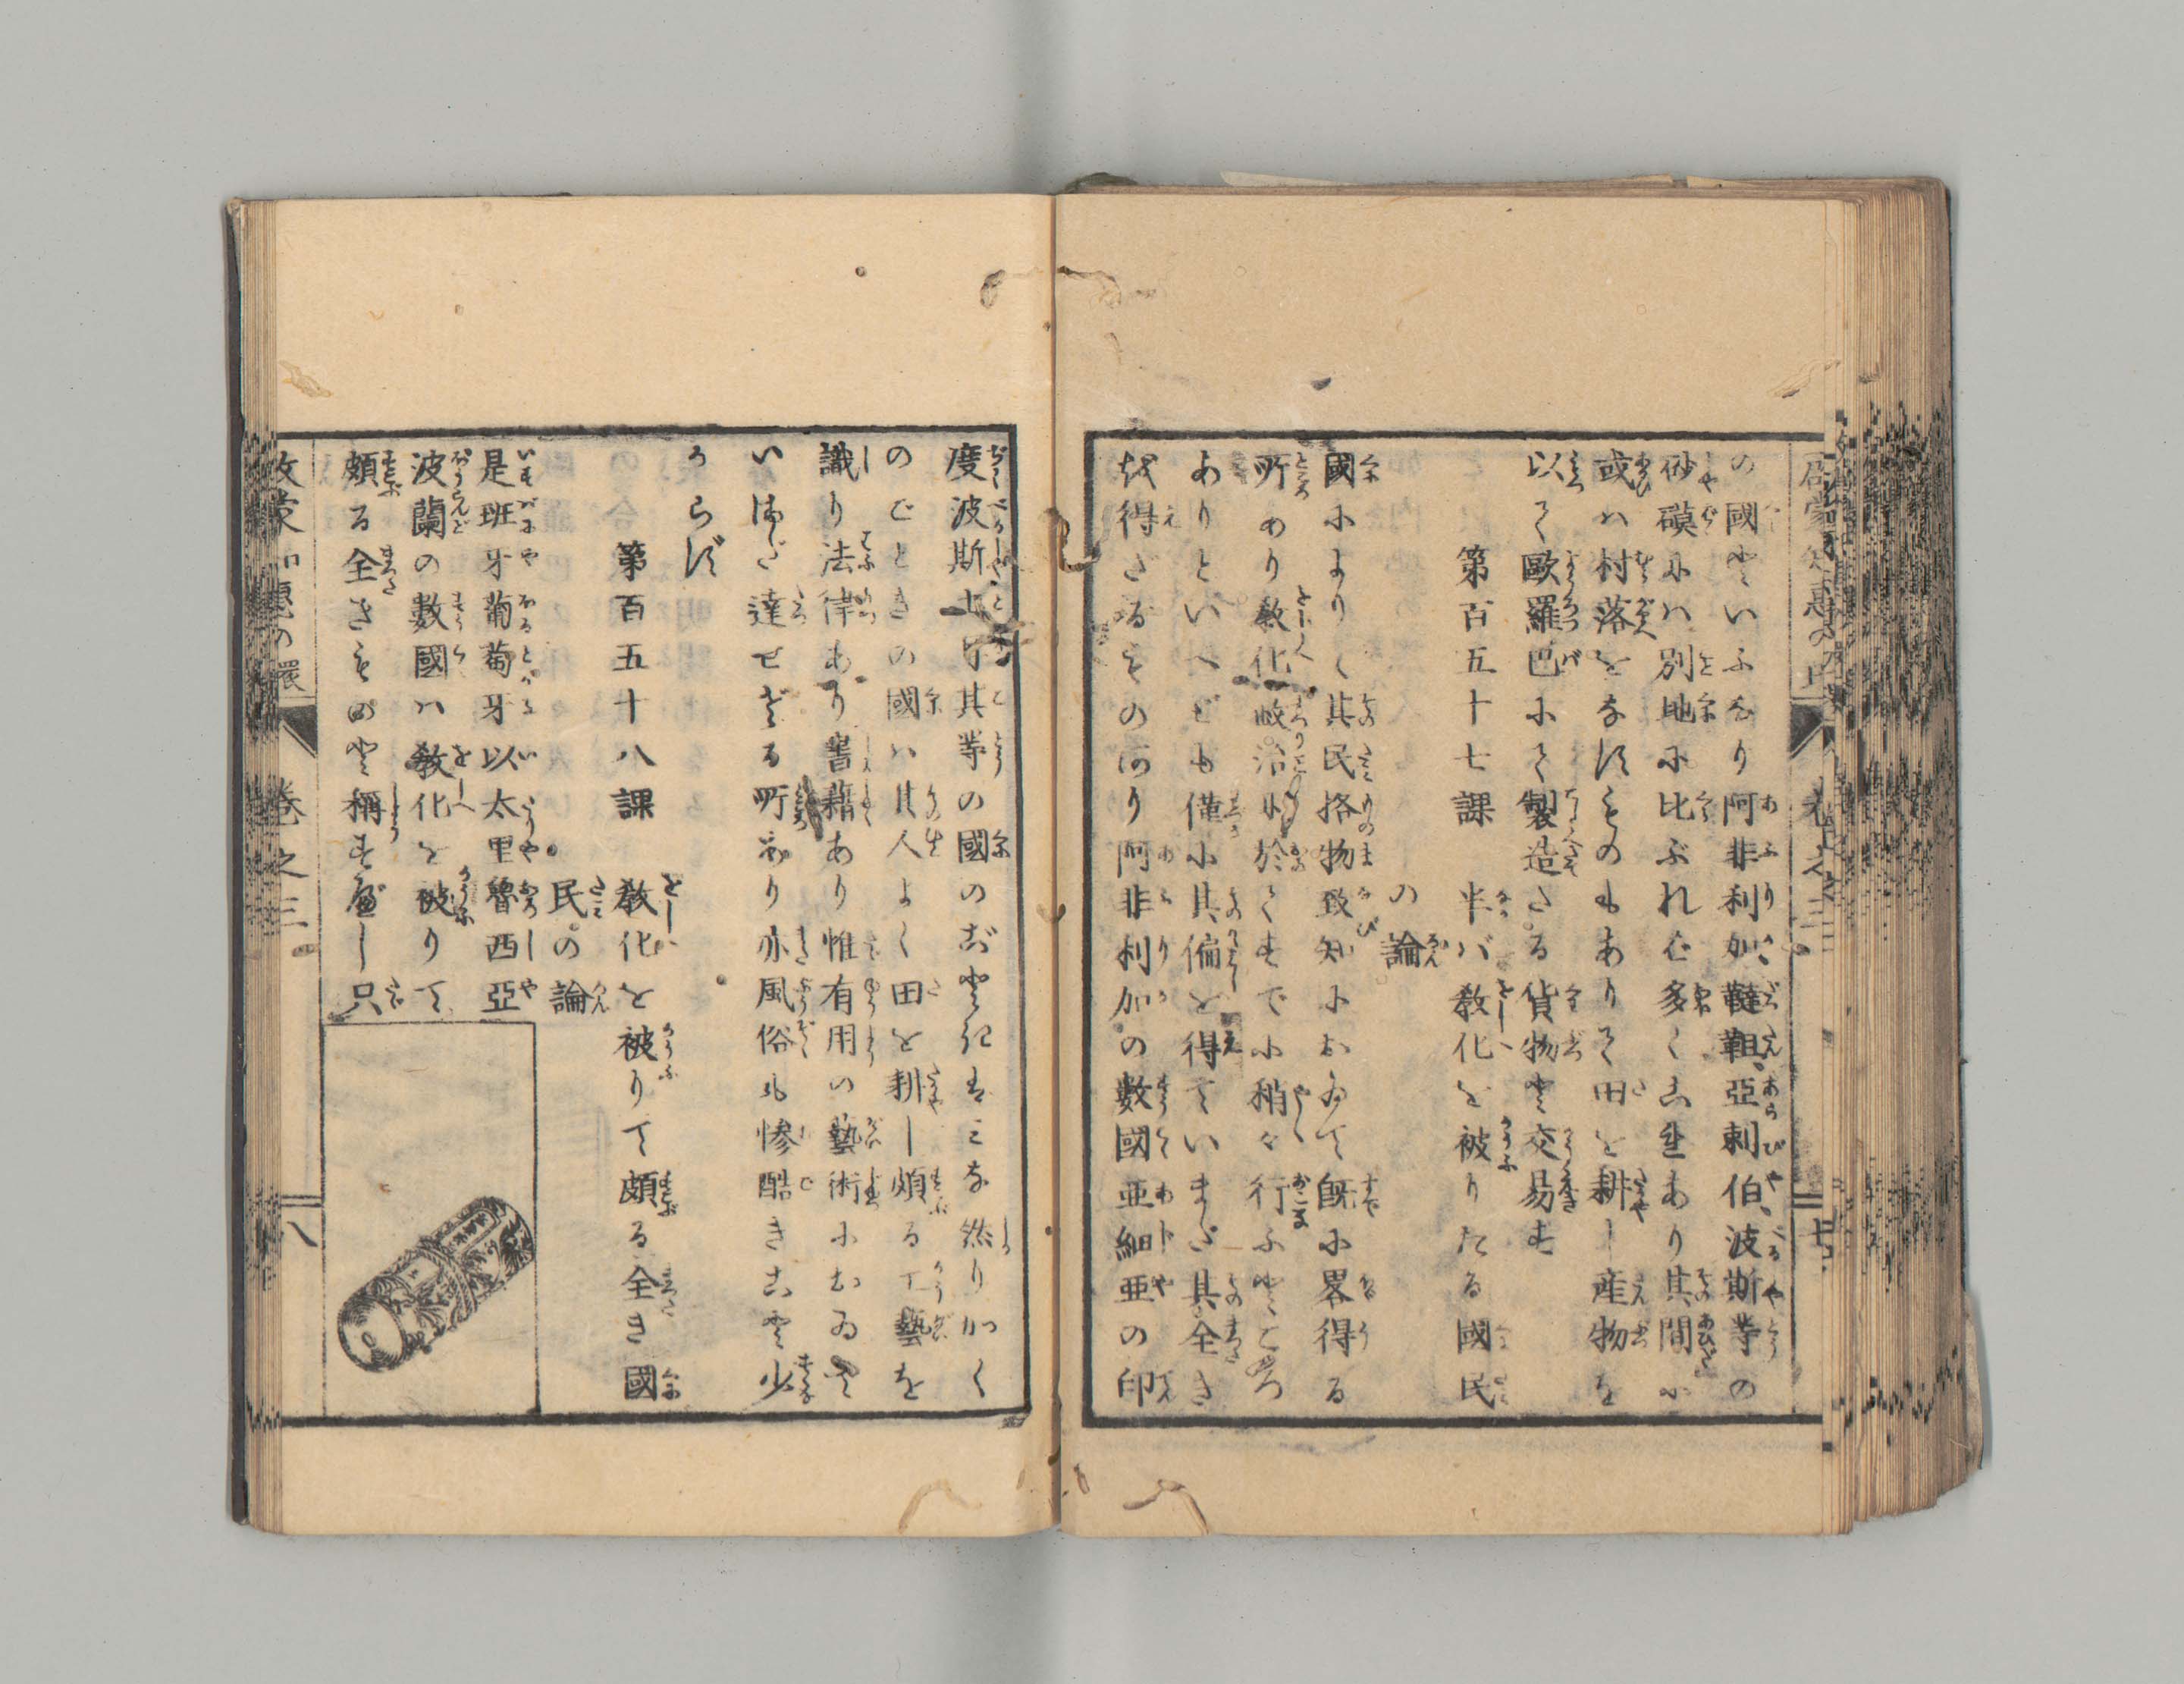 啓蒙知惠の環
卷之三
七
の國といふなり阿非利加、韃靼、亞剌伯、波斯等の
砂磧にハ別地に比ぶれバ多くこれあり其間に
或ハ村落をなすものもありて田を耕し産物を
以て歐羅巴にて製造さる貨物と交易す
第百五十七課 半バ教化を被りたる國民
の論
國によりて其民格物致知において既に畧得る
所あり教化政治に於てすでに稍々行ふところ
ありといへども僅に其偏を得ていまだ其全き
を得ざるもの有り阿非利加の數國亜細亜の印
度波斯土耳其等の國のごときはみな然りかく
のごときの國ハ其人よく田を耕し頗る工藝を
識り法律あり書籍あり惟有用の藝術において
いまだ達せざる所あり亦風俗も惨酷きこと少
からず
第百五十八課 教化を被りて頗る全き國
民の論
是班牙葡萄牙以太里魯西亞
波蘭の數國ハ教化を被りて
頗る全きものと稱す爲し只
啓蒙知惠の環
卷之三
八